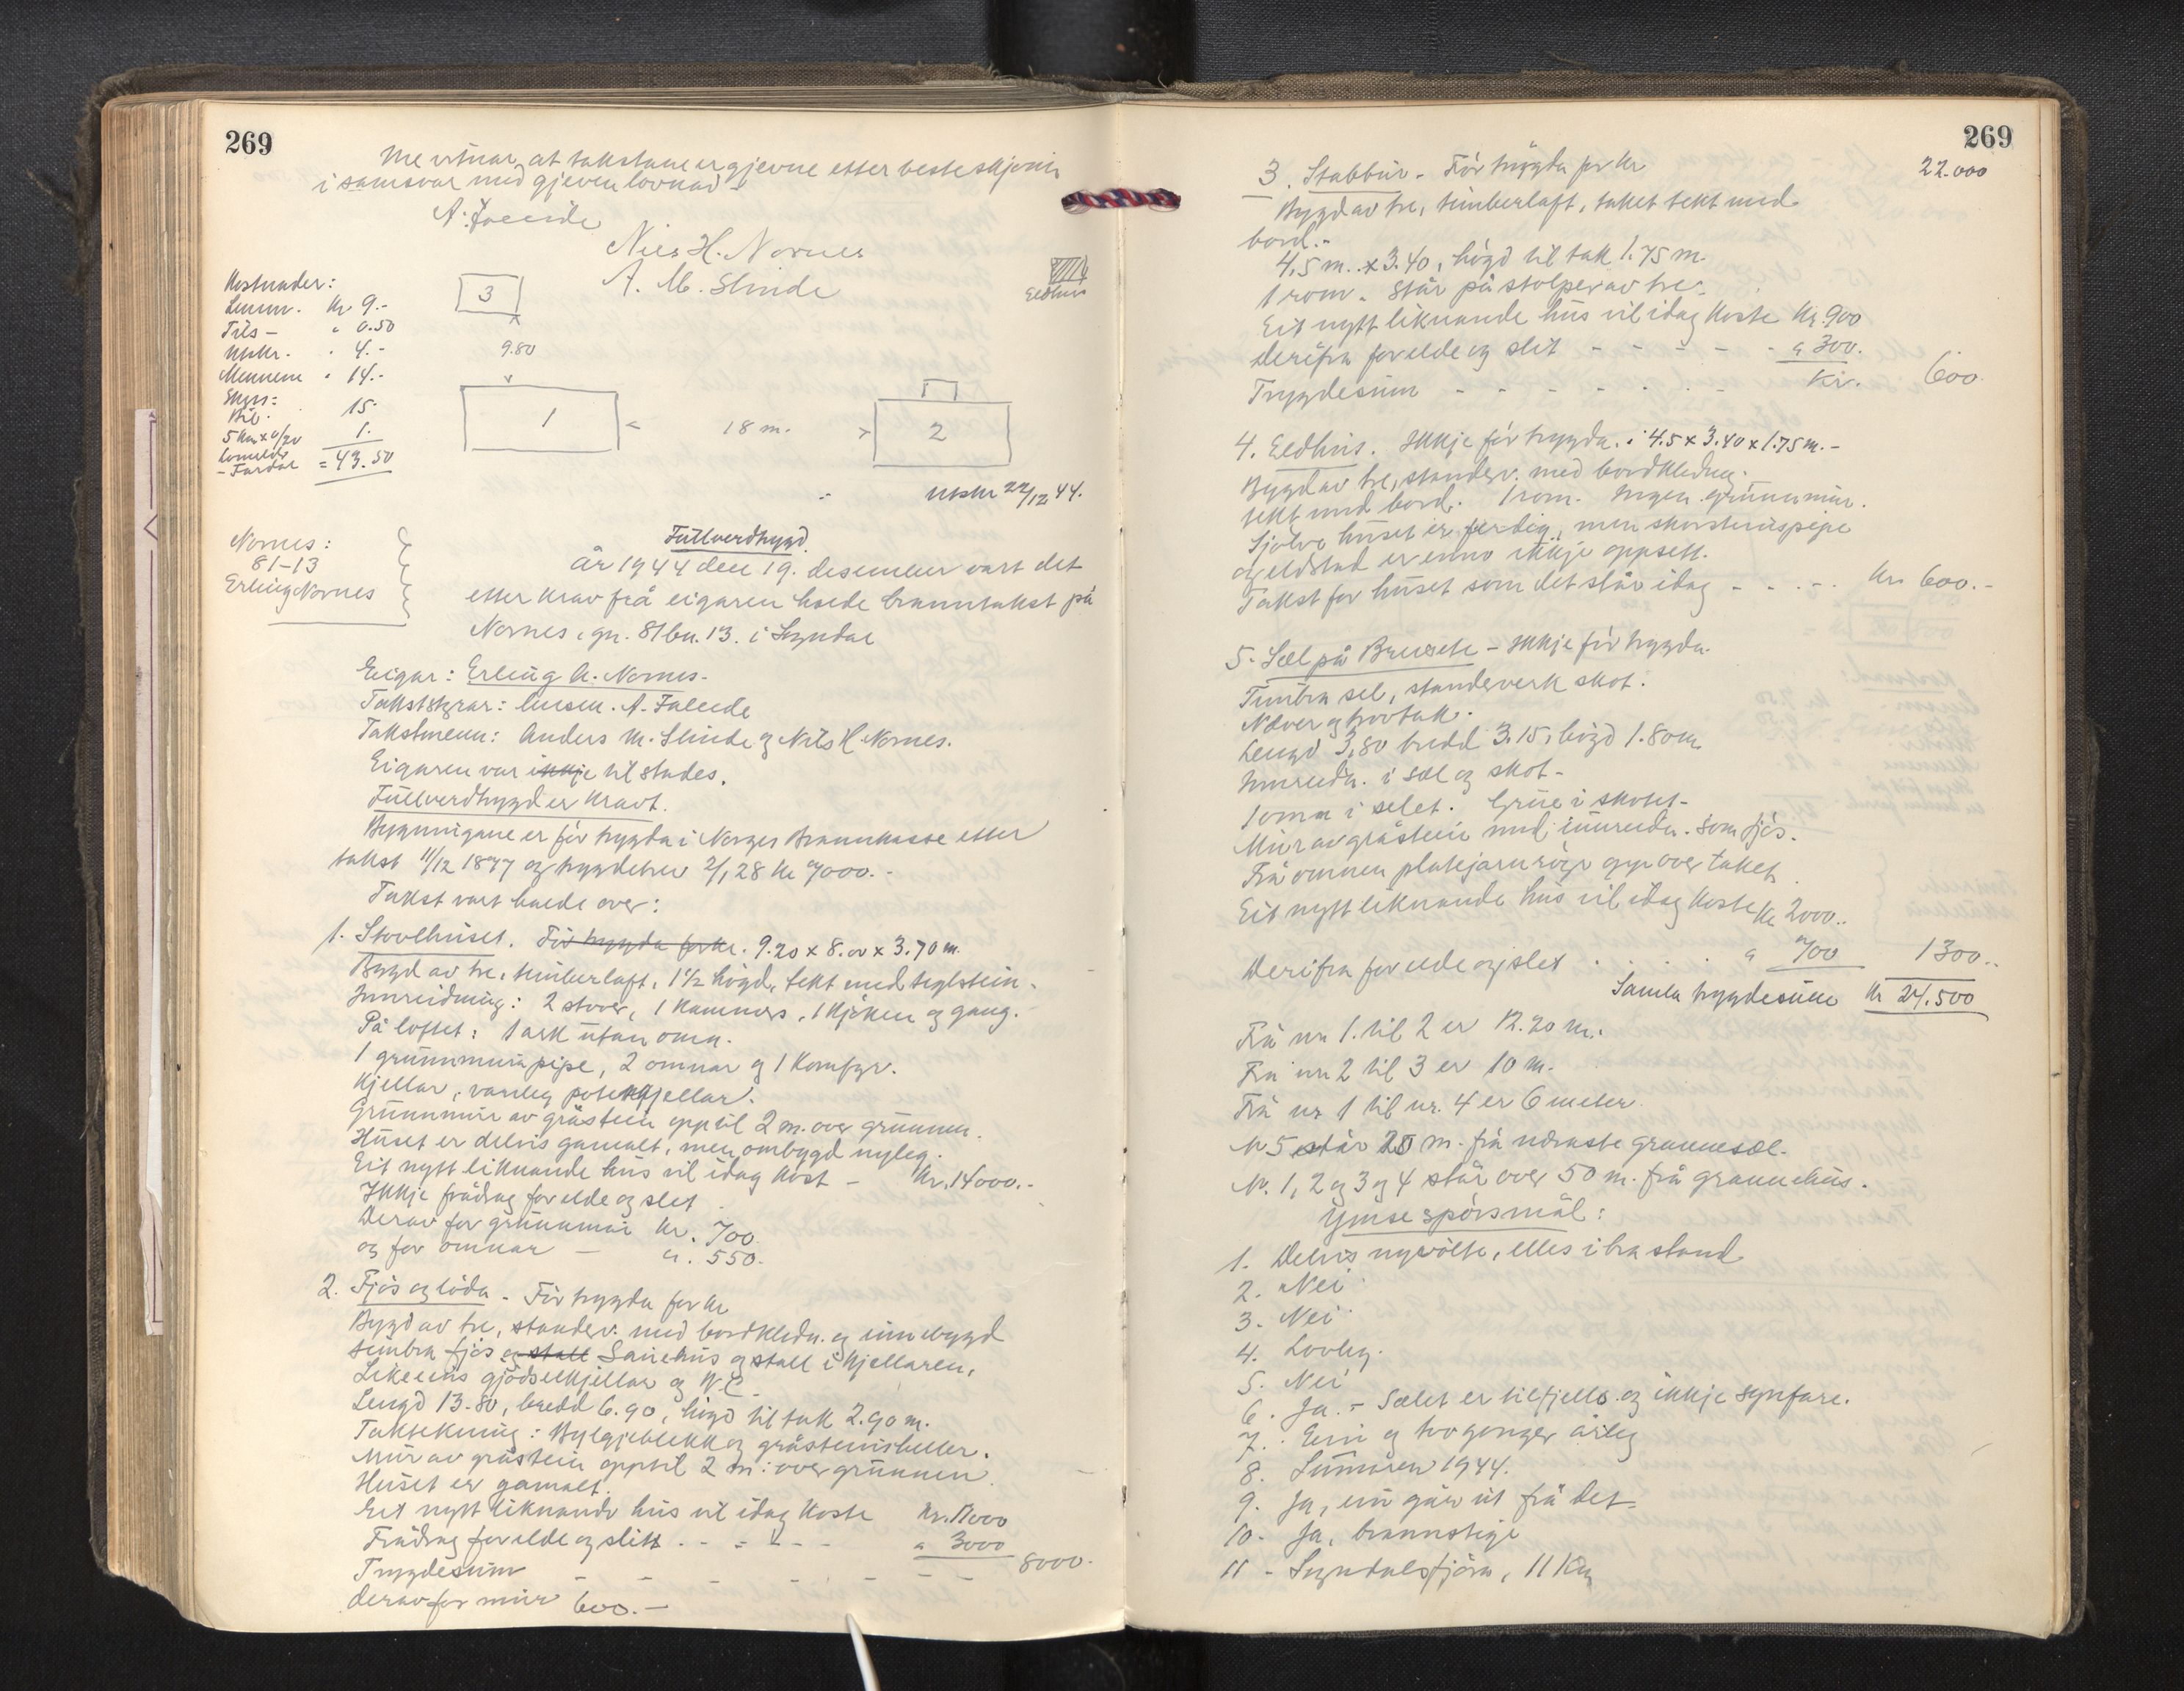 269
Me vitnar, at takstane er gjevne etter beste skjøn
i samsvar med gjeven lovnad
A. Faleide
Nils H. Nornes
A. M. Slinde
Kostnader:
Lensm. Kr 9.-
Tils - " 0.50
Utskr. " 4.-
Mennene " 14.-
Skyss:
Bil. 15.
5 km x 0/20 1.
- Fardal = 43.50
3
9.80
1
18 m.
2
Eldhus
Utskr 22/12 44.
Nornes:
81-13
Erling Nornes
Fullverdtrygd.
År 1944 den 19. desember vart det
etter krav frå eigaren halde branntakst på
Nornes, gn. 81 bn. 13. i Sogndal
Eigar: Erling A. Nornes.-
Takststyrar: lensm. A. Faleide
Takstmenn: Anders M. Slinde og Nils H. Nornes.
Eigaren var ikkje til stades.
Fullverdtrygd er kravt.
Bygningane er før trygda i Norges Brannkasse etter
takst 11/12 1877 og trygdebrev 2/1 28 kr 7000.-
Takst vart halde over:
1. Stovehuset. Før trygda for kr. 9.20 x 8.00 x 3.70 m.
Bygd av tre, timberlaft, 1½ høgd, tekt med teglstein.
Innreidning: 2 stover, 1 kammers, 1 kjøken og gang.
På loftet: 1 ark utan omn.
1 grunnmurapipe, 2 omnar og 1 komfyr.
Kjellar, vanleg potetkjellar.
Grunnmur av gråstein opptil 2 m. over grunnen.
Huset er delvis gamalt, men ombygd nyleg.
Eit nytt liknande hus vil idag kost - Kr. 14000.-
Ikkje frådrag for elde og slit
Derav for grunnmur kr. 700
og for omnar - ". 550.
2. Fjøs og løda - Før trygda for kr
Bygd av tre, standerv. med bordkledn. og innebygd
timbra fjøs og stall Sauehus og stall i kjellaren.
Likeeins gjødselkjellar og W.C.
Lengd 13.80, bredd 6.90, høgd til tak 2.90 m.
Taktekning: Bylgjeblekk og gråsteinsheller.
Mur av gråstein opptil 2 m. over grunnen
Huset er gamalt.
Eit nytt liknande hus vil idag koste Kr. 11000
Frådrag for elde og slitt - - - - - " 3000
Trygdesum - - - - - - - 8000.
Derav for mur 600.-
269
22.000
3. Stabbur - Før trygda for kr
Bygd av tre, timberlaft, taket tekt med
bord.-
4.5 m. x 3.40, høgd til tak 1.75 m.
1 rom. Står på stolper av tre.
Eit nytt liknande hus vil idag koste Kr. 900
Derifra for elde og slit - - - - - " 300.
Trygdesum - - - - - - - Kr. 600.
4. Eldhus. Ikkje før trygda. 4.5 x 3.40 x 1.75 m.-
Bygd av tre, standerv. med bordkledning.
tekt med bord. 1 rom. Ingen grunnmur.
Sjølve huset er ferdig, men skorsteinspipe
og eldstad er enno ikkje oppsett.
Takst for huset som det står idag - - - - kr. 600.-
5. Sæl på - Ikkje før trygda
Timbra sel, standerverk skot.
Næver og torvtak.
Lengd 3.80 bredd 3.15, høgd 1.80 m.
Innreidn. i sæl og skot.-
1 omn i selet. Grue i skotet.-
Mur av gråstein med innreidn. som fjøs.
Frå omnen platejarn røyr opp over taket.
Eit nytt liknande hus vil idag koste Kr 2000..
Derifra for elde og slet . . . . " 700 1300..
Samla trygdesum kr 24.500
Frå nr 1. til 2 er 12.20 m.
Frå nr 2 til 3 er 10 m.
Frå nr 1 til nr. 4 er 6 meter
Nr 5 står 25 m. frå næraste grannesæl.
Nr. 1, 2 og 3 og 4 står over 50 m. frå grannehus.
Ymse spørsmål:
1. Delvis nyvølte, elles i bra stand
2. Nei
3. Nei
4. Lovleg.
5. Nei
6. Ja. - Sælet er til fjells og ikkje synfare.
7. Ein og two gonger årleg
8. Sumaren 1944.
9. Ja, ein går ut frå det.
10. Ja, brannstige
11 - Sogndalsfjøra, 11 km